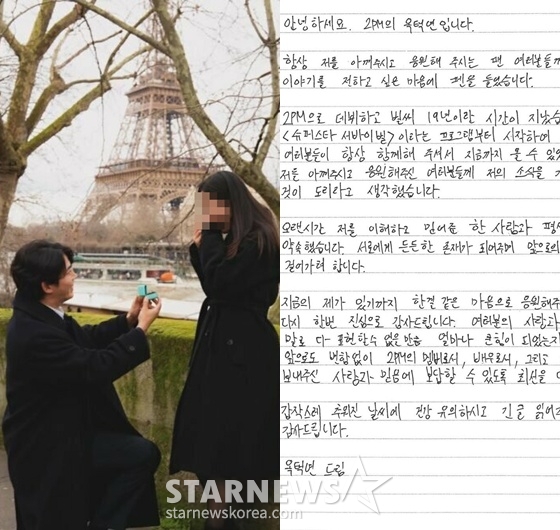 안녕하세요. 2PM의 옥택연입니다.
항상 저를 아껴주시고 응원해 주시는 팬 여러분들께
이야기를 전하고 싶은 마음에 펜을 들었습니다.
2PM으로 데뷔하고 벌써 19년이란 시간이
<슈퍼스타 서바이벌>이라는 프로그램부터 시작하여
여러분들이 항상 함께해 주셔서 지금까지 올 수
저를 아껴주시고 응원해주신 여러분들께 저의 소식을
것이 도리라고 생각했습니다.
오랜시간 저를 이해하고 믿어준 한 사람과
약속했습니다. 서로에게 든든한 존재가 되어주며 앞으로의
걸어가려 합니다.
지금의 제가 있기까지 한결 같은 마음으로
다시 한번 진심으로 감사드립니다. 여러분의 사랑과
말로 다 표현할수 없을 만큼 얼마나 큰힘이 되었는지
앞으로도 변함없이 2PM의 멤버로서, 배우로서, 그리고
보내주신 사랑과 믿음에 보답할 수 있도록 최선을
갑작스레 추워진 날씨에 건강 유의하시고 긴글
감사드립니다.
옥택연 드림
STARNEWS
starnewskorea.com